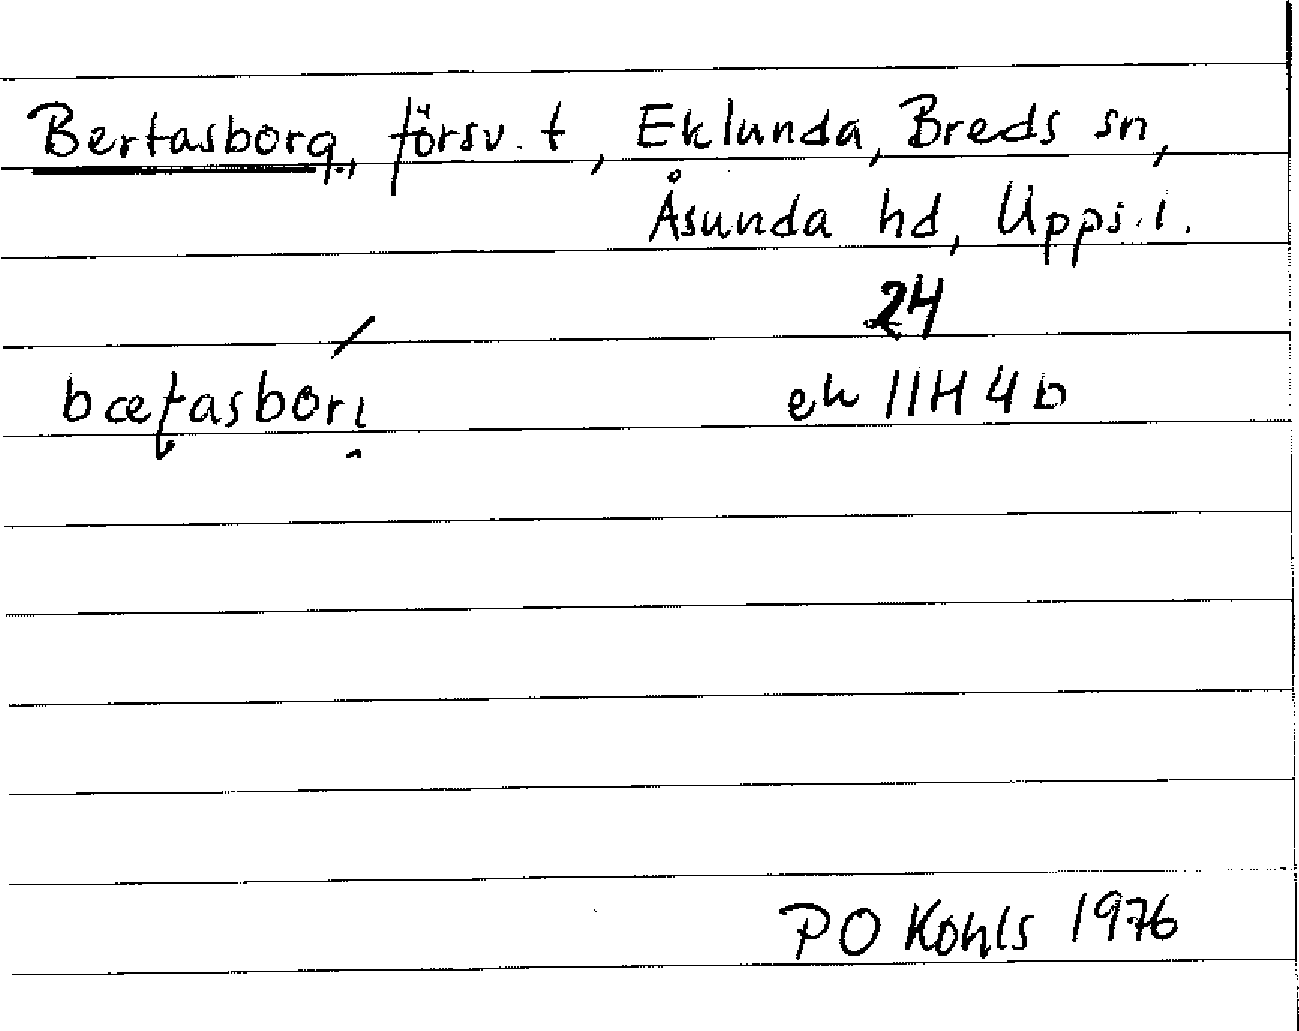 Bertasborg, försv. t, Eklunda, Breds sn,
Åsunda hd, Upps. l.
24
bæʈasbori̯
ek 11H 4b
PO Kohls 1976